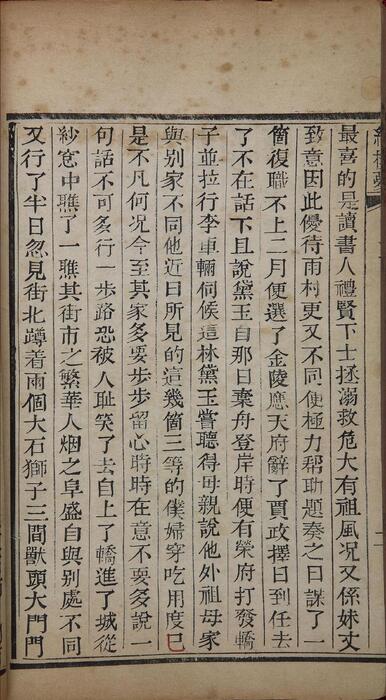 最喜的是讀書人禮賢下士拯溺救危大有祖風况又係妹丈
致意因此優待雨村更又不同便極力帮助題奏之日謀了一
箇復職不上二月便選了金陵應天府辭了賈政擇日到任去
了不在話下且說黛玉自那日棄舟登岸時便有榮府打發轎
子並拉行李車輛伺候這林黛玉嘗聽得母親說他外祖母家
與别家不同他近日所見的這幾箇三等的僕婦穿吃用度已
是不凡何况今至其家多要步步留心時時在意不要多說一
句話不可多行一步路恐被人耻笑了去自上了轎進了城從
紗窓中瞧了一瞧其街市之繁華人烟之阜盛自與别處不同
又行了半日忽見街北蹲着兩個大石獅子三間獸頭大門門